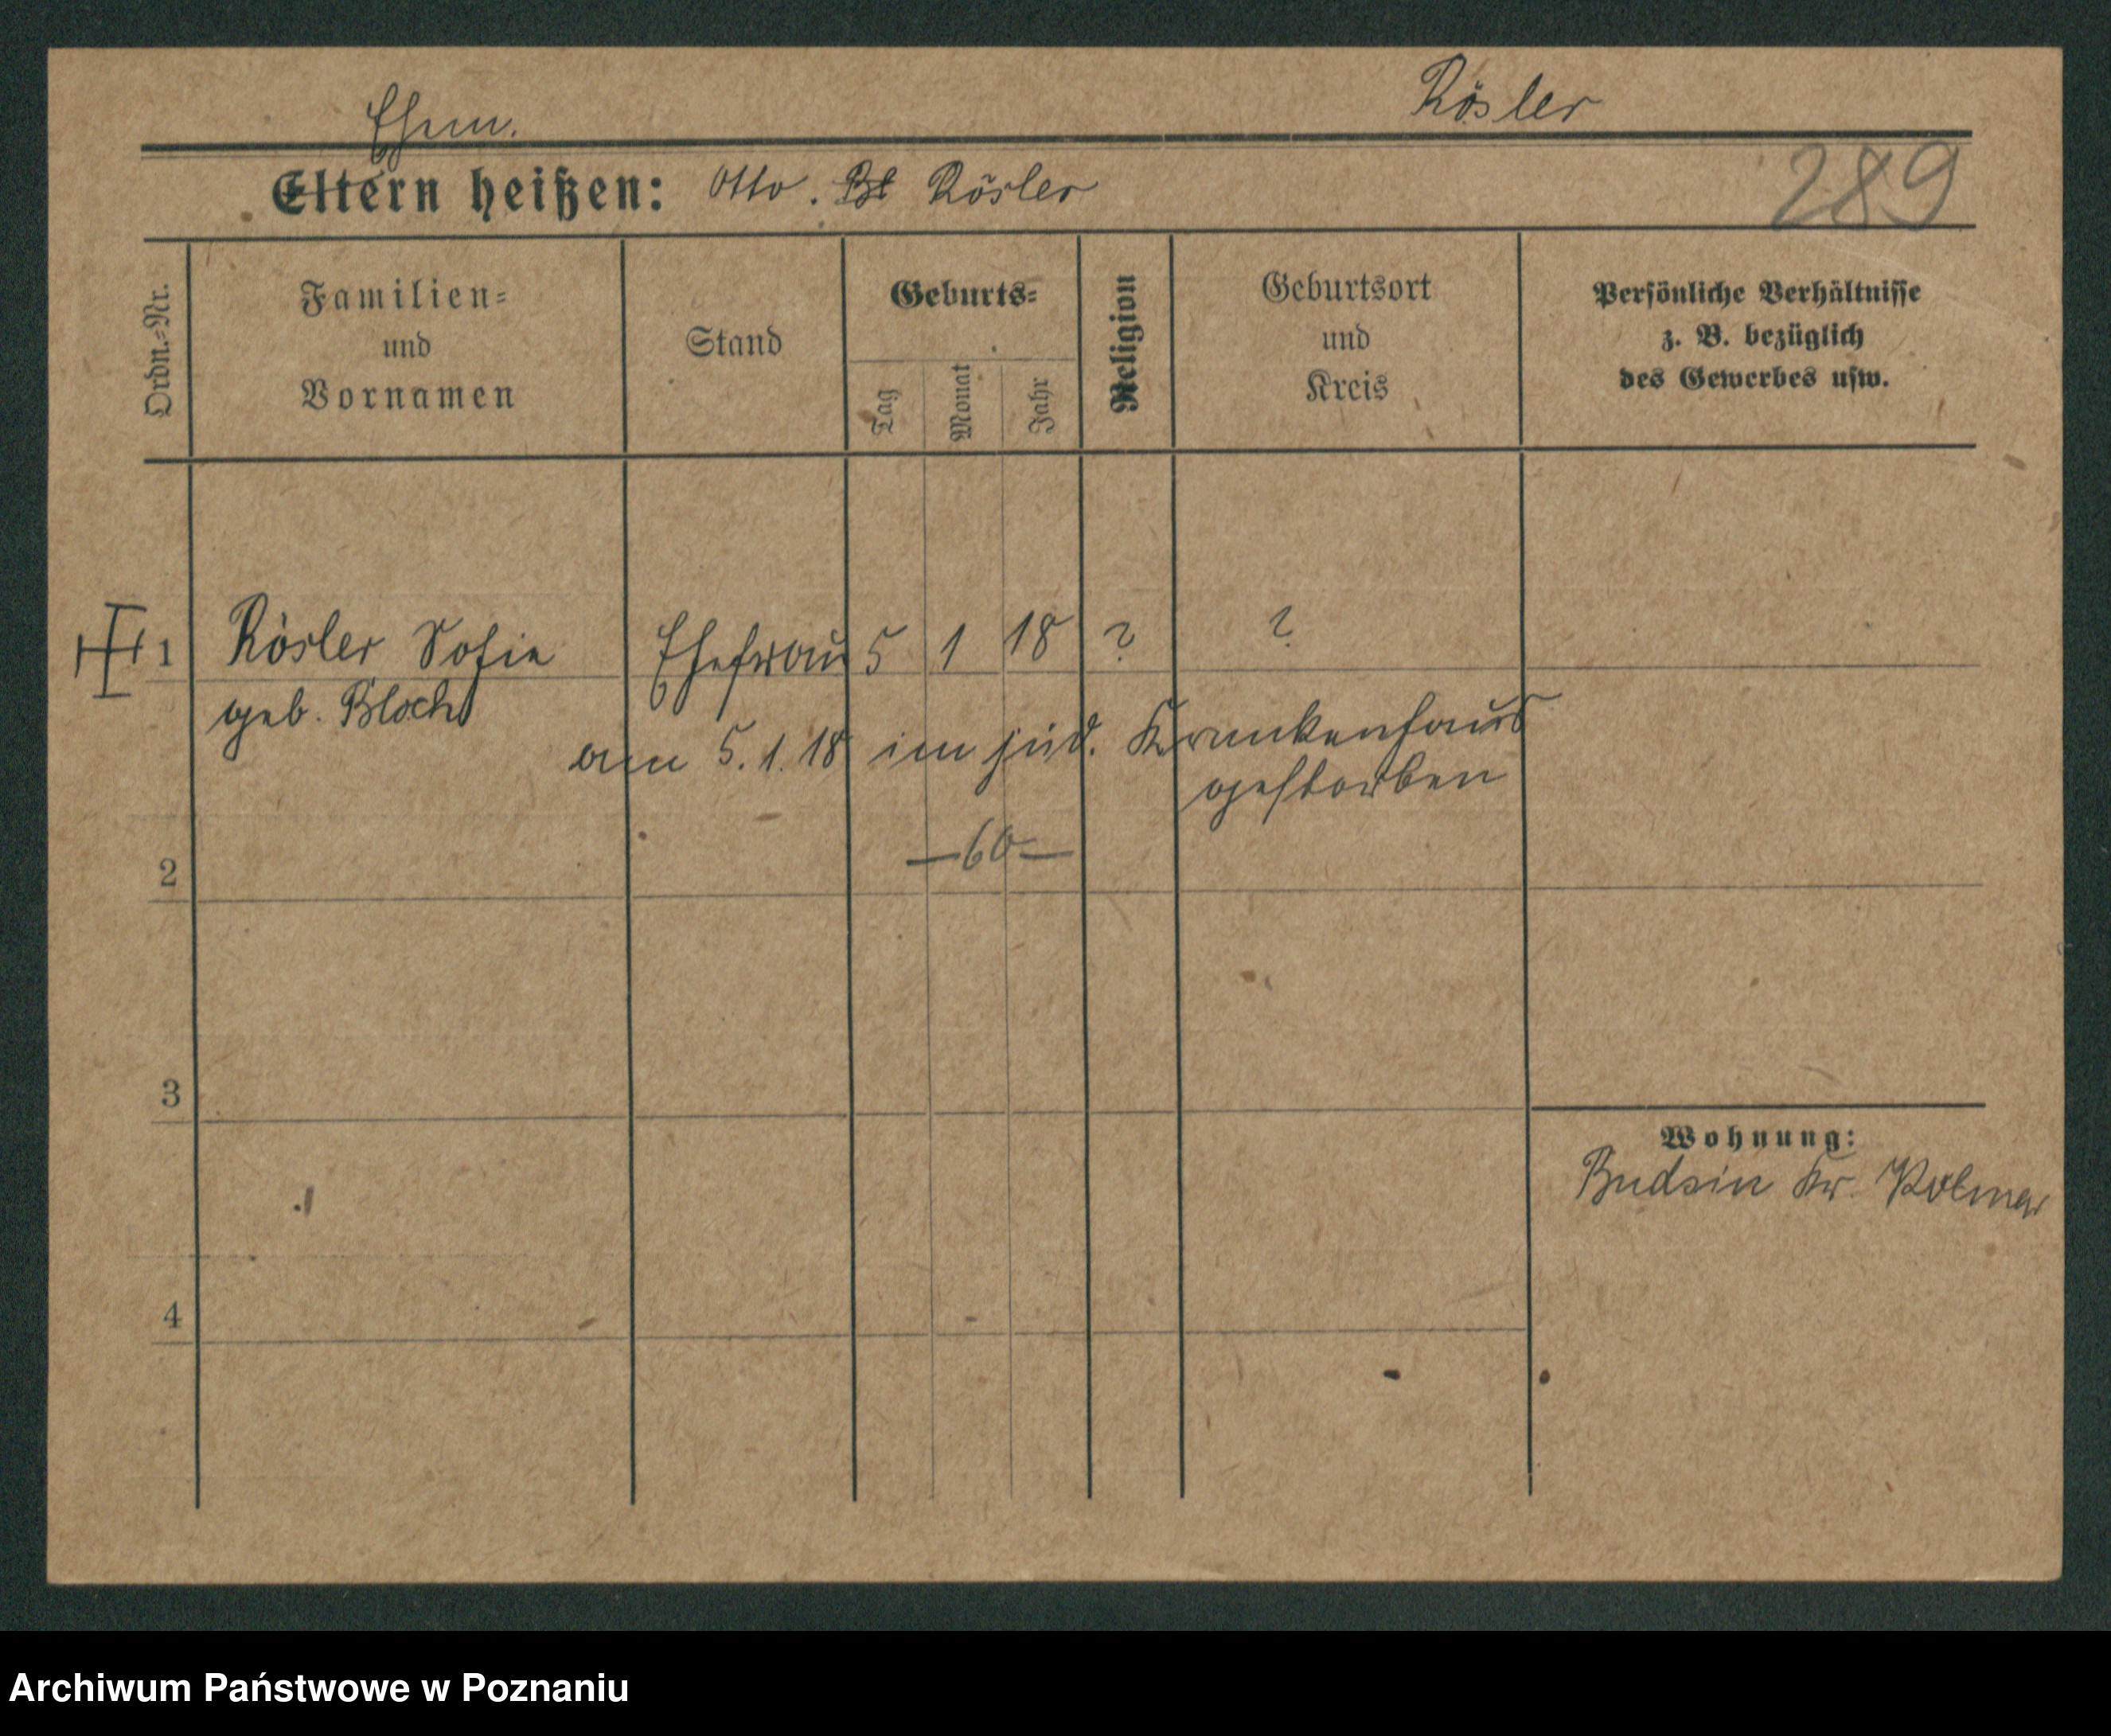 Ehem. Rösler
Eltern heißen: Otto. Rösler
289
Ordn.=Nr.
Familien=
und
Vornamen
Stand
Geburts=
Tag
Monat
Jahr
Religion
Geburtsort
und
Kreis
Persönliche Verhältnisse
z. B. bezüglich
des Gewerbes usw.
1 Rösler Sofie Ehefrau 5 1 18 ? ?
geb. Bloch
am 5. 1. 18 im jüd. Krankenhaus
gestorben
—60—
2
3
Wohnung:
Budsin Kr. Kolmar
4
Archiwum Państwowe w Poznaniu